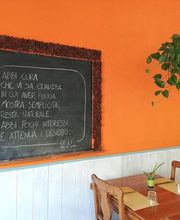 ABBI CURA
CHE VI SIA QUALCOSA
IN CUI AVER FIDUCIA,
MOSTRA SEMPLICITÀ,
RESTA NATURALE,
ABBI POCHI INTERESSI
E ATTENUA I DESIDERI